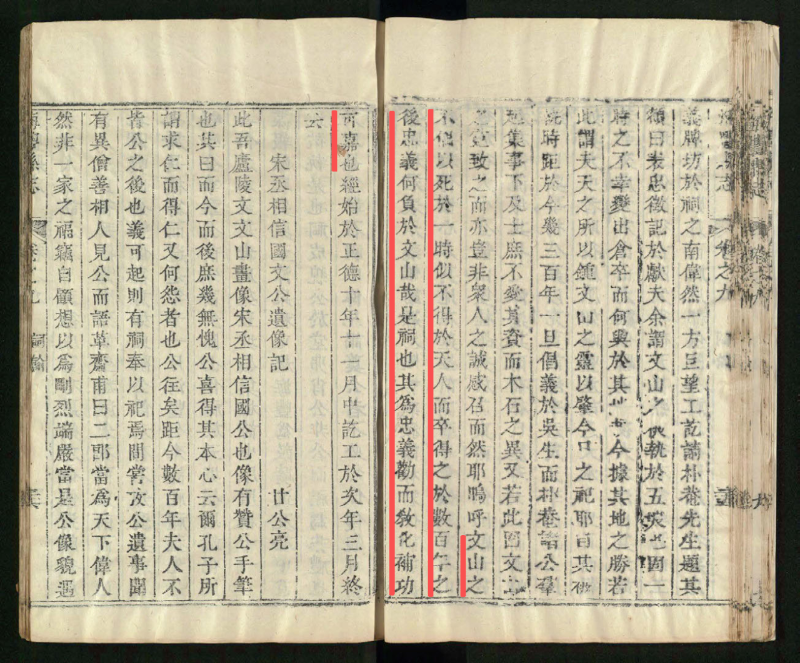 義牌坊於祠之南偉然一方巨望工訖請朴菴先生題其
德曰表忠徵記於獻夫余謂文山之執於五坡固一
時之不幸變出倉卒而何與於其今據其地之勝若
此謂夫天之所以鍾文山之靈以肇今日之祀耶自其
時距於今幾三百年一旦倡義於吳生而朴菴諸公羣
集事下及士庶不愛其資而木石之異又若此固文
之之而亦豈非衆人之誠感召而然耶嗚呼文山之
不偶以死於一時似不得於天人而卒得之於數百年之
後忠義何負於文山哉是祠也其為忠義勸而敎化補功
可嘉也經始於正德十年十一月中訖工於次年三月終
云
宋丞相信國文公遺像記
甘公亮
此吾廬陵文文山畫像宋丞相信國公也像有贊公手筆
也其曰而今而後庶幾無愧公喜得其本心云爾孔子所
謂求仁而得仁又何怨者也公往矣距今數百年夫人不
皆公之後也義可起則有祠奉以祀焉間嘗攷公遺事聞
有異僧善相人見公而語革齋甫曰二郎當為天下偉人
然非一家之福竊自顧想以為剛烈端嚴當是公像貌遇
海豐縣志
卷之九
詞翰